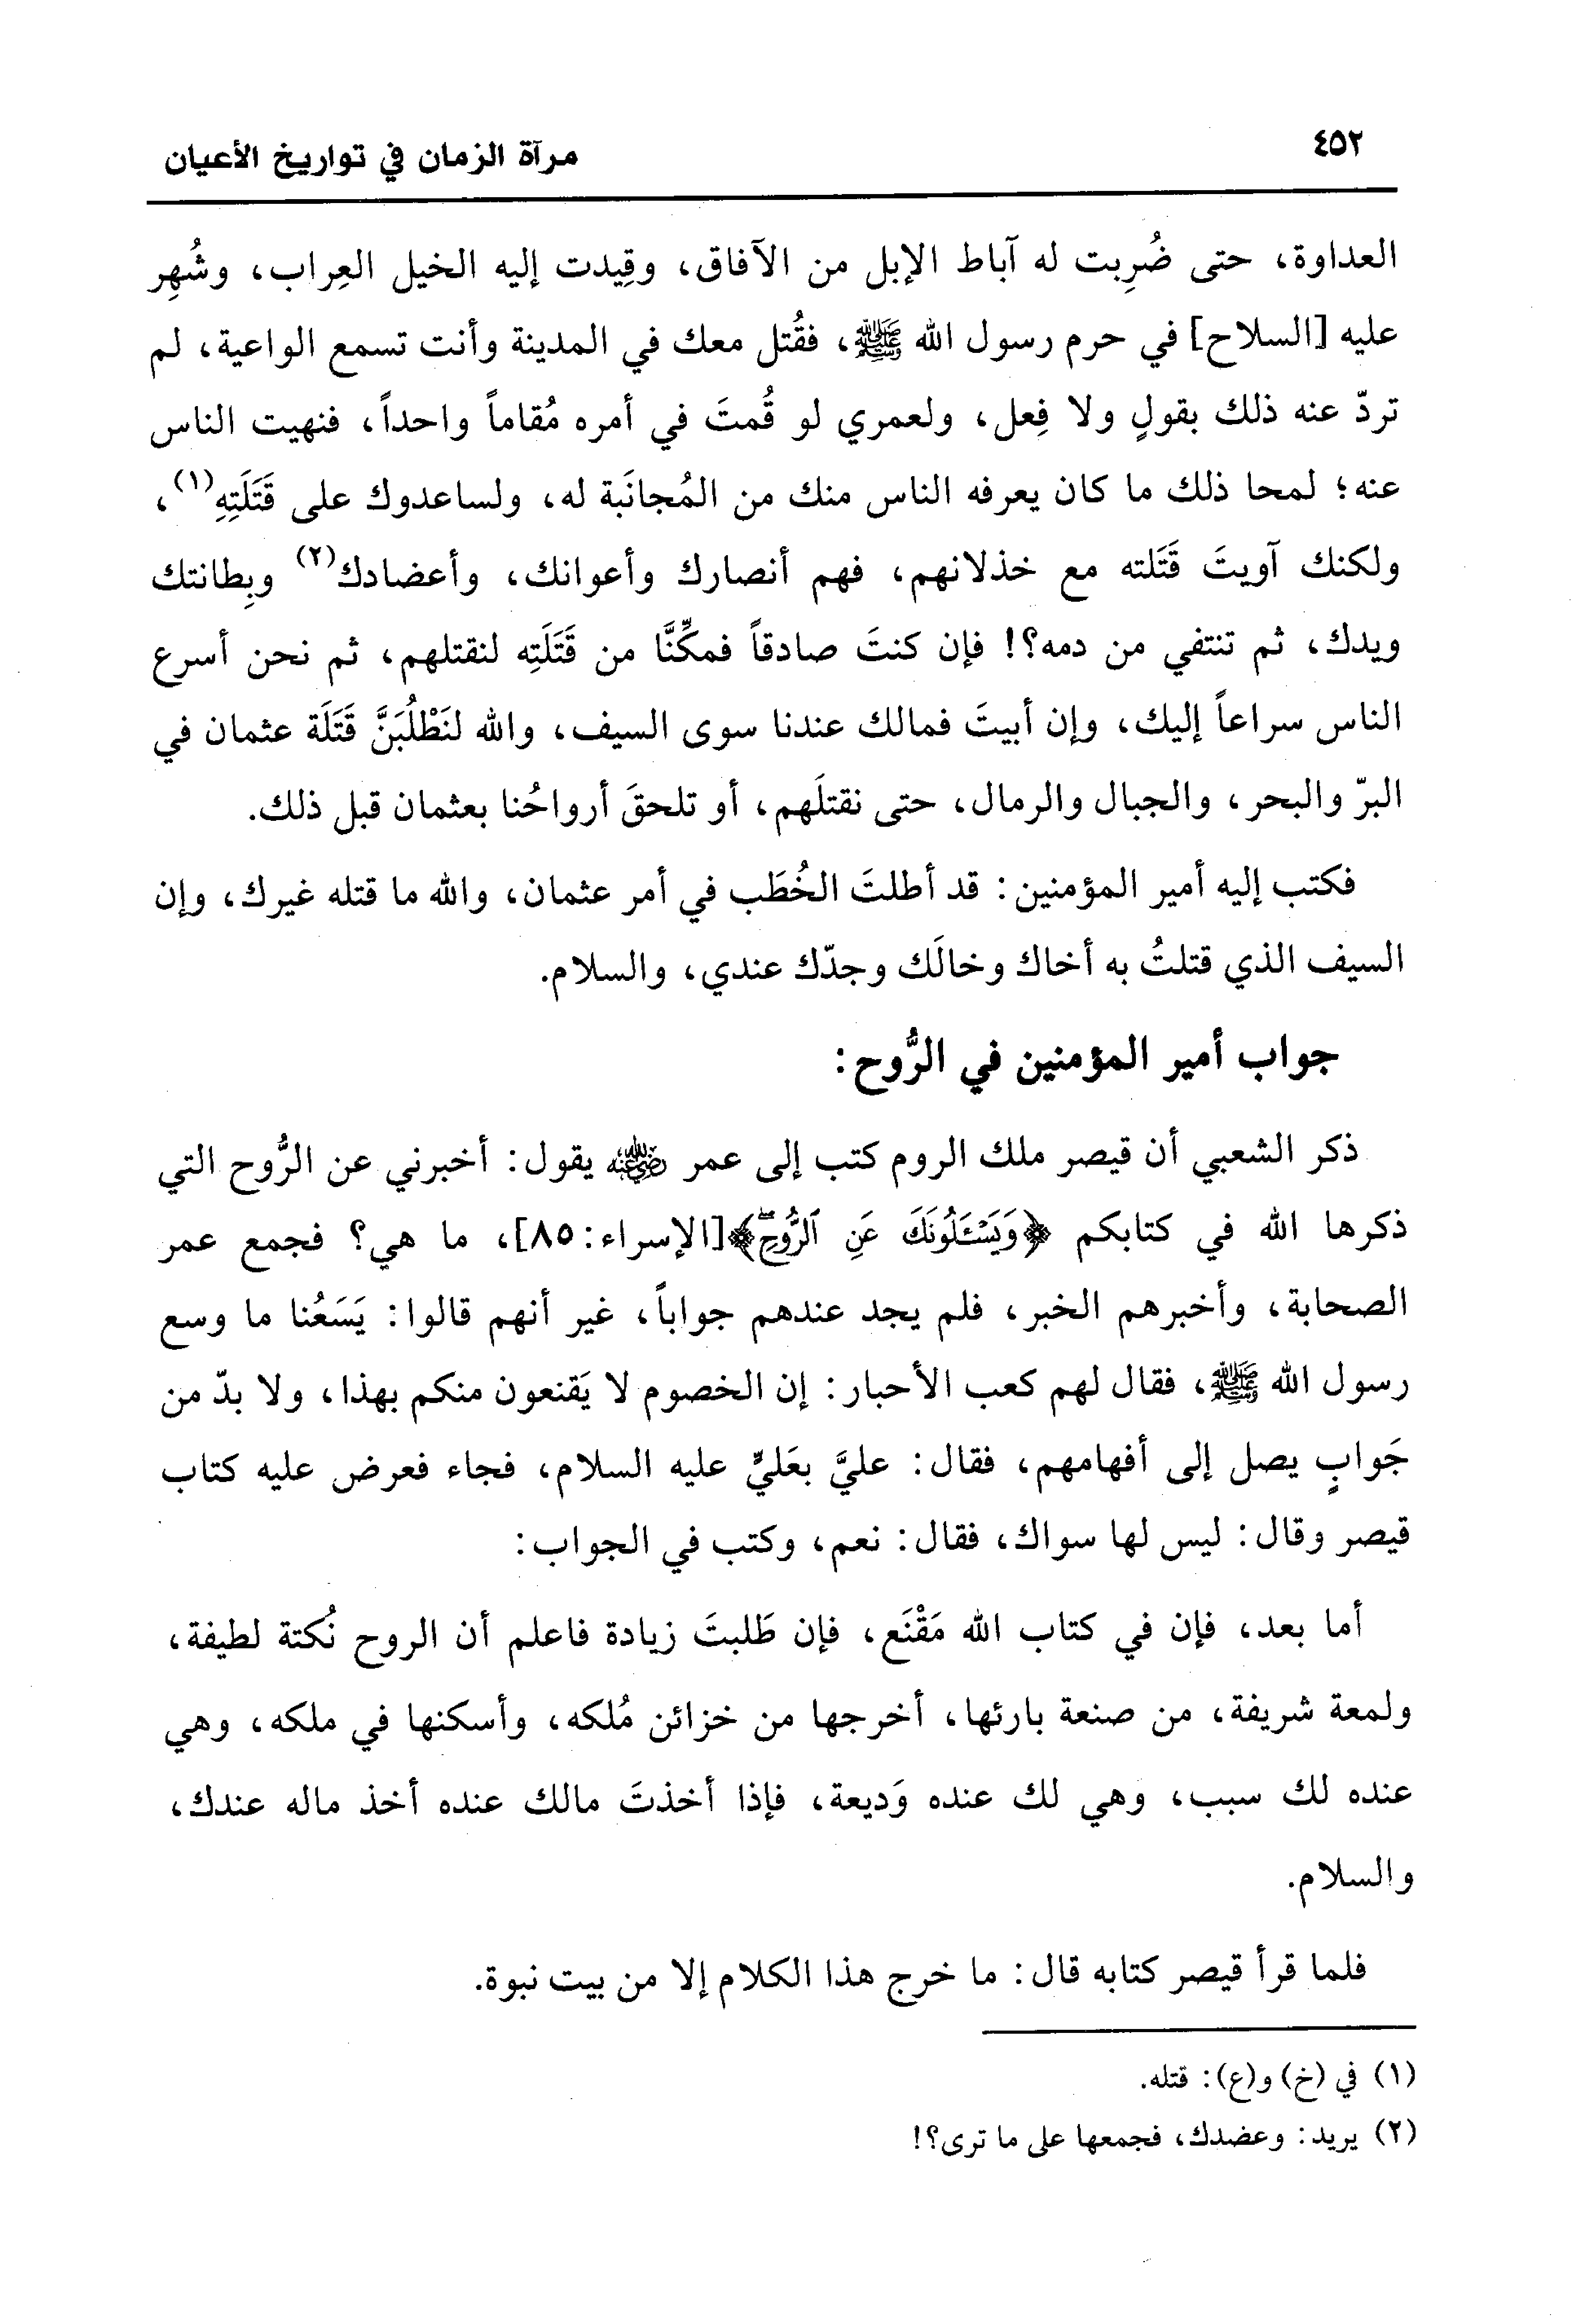 ٤٥٢ مرآة الزمان في تواريخ الأعيان
العداوة، حتى ضُرِبت له آباط الإبل من الآفاق، وقِيدت إليه الخيل العِراب، وشُهِر
عليه [السلاح] في حرم رسول الله ﷺ، فقُتل معك في المدينة وأنت تسمع الواعية، لم
تردّ عنه ذلك بقولٍ ولا فِعل، ولعمري لو قُمتَ في أمره مُقاماً واحداً، فنهيت الناس
عنه؛ لمحا ذلك ما كان يعرفه الناس منك من المُجانَبة له، ولساعدوك على قَتَلَتِهِ(١)،
ولكنك آويتَ قَتَلته مع خذلانهم، فهم أنصارك وأعوانك، وأعضادك(٢) وبِطانتك
ويدك، ثم تنتفي من دمه؟! فإن كنتَ صادقاً فمكِّنَّا من قَتَلَتِه لنقتلهم، ثم نحن أسرع
الناس سراعاً إليك، وإن أبيتَ فمالك عندنا سوى السيف، والله لنَطْلُبَنَّ قَتَلَة عثمان في
البرّ والبحر، والجبال والرمال، حتى نقتلَهم، أو تلحقَ أرواحُنا بعثمان قبل ذلك.
فكتب إليه أمير المؤمنين: قد أطلتَ الخُطَب في أمر عثمان، والله ما قتله غيرك، وإن
السيف الذي قتلتُ به أخاك وخالَك وجدّك عندي، والسلام.
جواب أمير المؤمنين في الرُّوح:
ذكر الشعبي أن قيصر ملك الروم كتب إلى عمر رضي الله عنه يقول: أخبرني عن الرُّوح التي
ذكرها الله في كتابكم ﴿وَيَسْـَٔلُونَكَ عَنِ ٱلرُّوحِۖ﴾[الإسراء: ٨٥]، ما هي؟ فجمع عمر
الصحابة، وأخبرهم الخبر، فلم يجد عندهم جواباً، غير أنهم قالوا: يَسَعُنا ما وسع
رسول الله ﷺ، فقال لهم كعب الأحبار: إن الخصوم لا يَقنعون منكم بهذا، ولا بدّ من
جَوابٍ يصل إلى أفهامهم، فقال: عليَّ بعَليٍّ عليه السلام، فجاء فعرض عليه كتاب
قيصر وقال: ليس لها سواك، فقال: نعم، وكتب في الجواب:
أما بعد، فإن في كتاب الله مَقْنَع، فإن طَلبتَ زيادة فاعلم أن الروح نُكتة لطيفة،
ولمعة شريفة، من صنعة بارئها، أخرجها من خزائن مُلكه، وأسكنها في ملكه، وهي
عنده لك سبب، وهي لك عنده وَديعة، فإذا أخذتَ مالك عنده أخذ ماله عندك،
والسلام.
فلما قرأ قيصر كتابه قال: ما خرج هذا الكلام إلا من بيت نبوة.
(١) في (خ) و(ع): قتله.
(٢) يريد: وعضدك، فجمعها على ما ترى؟!